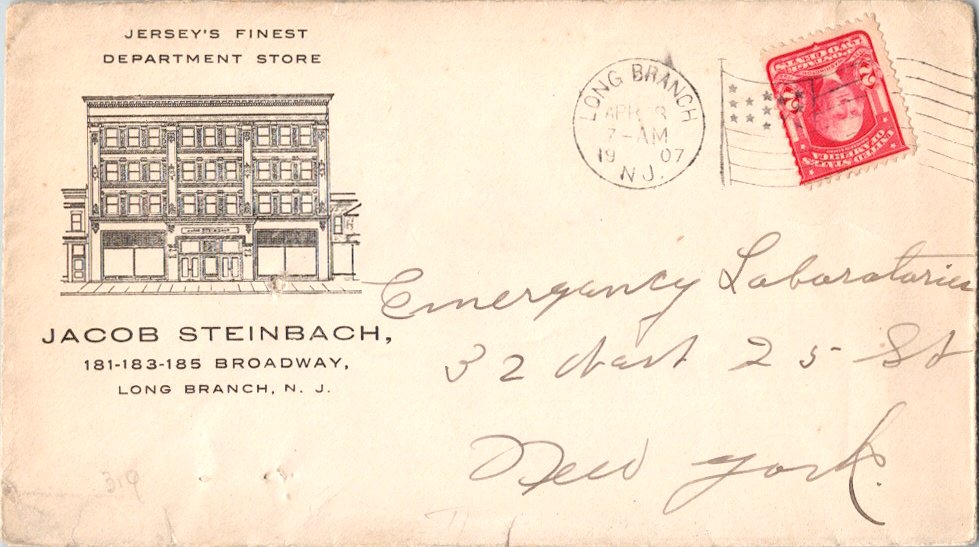 JERSEY'S FINEST
DEPARTMENT STORE
JACOB STEINBACH,
181-183-185 BROADWAY,
LONG BRANCH, N. J.
LONG BRANCH
APR 8
7-AM
1907
N.J.
UNITED STATES
OF AMERICA
2 2
Emergency Laboratories
32 West 25 St
New York.